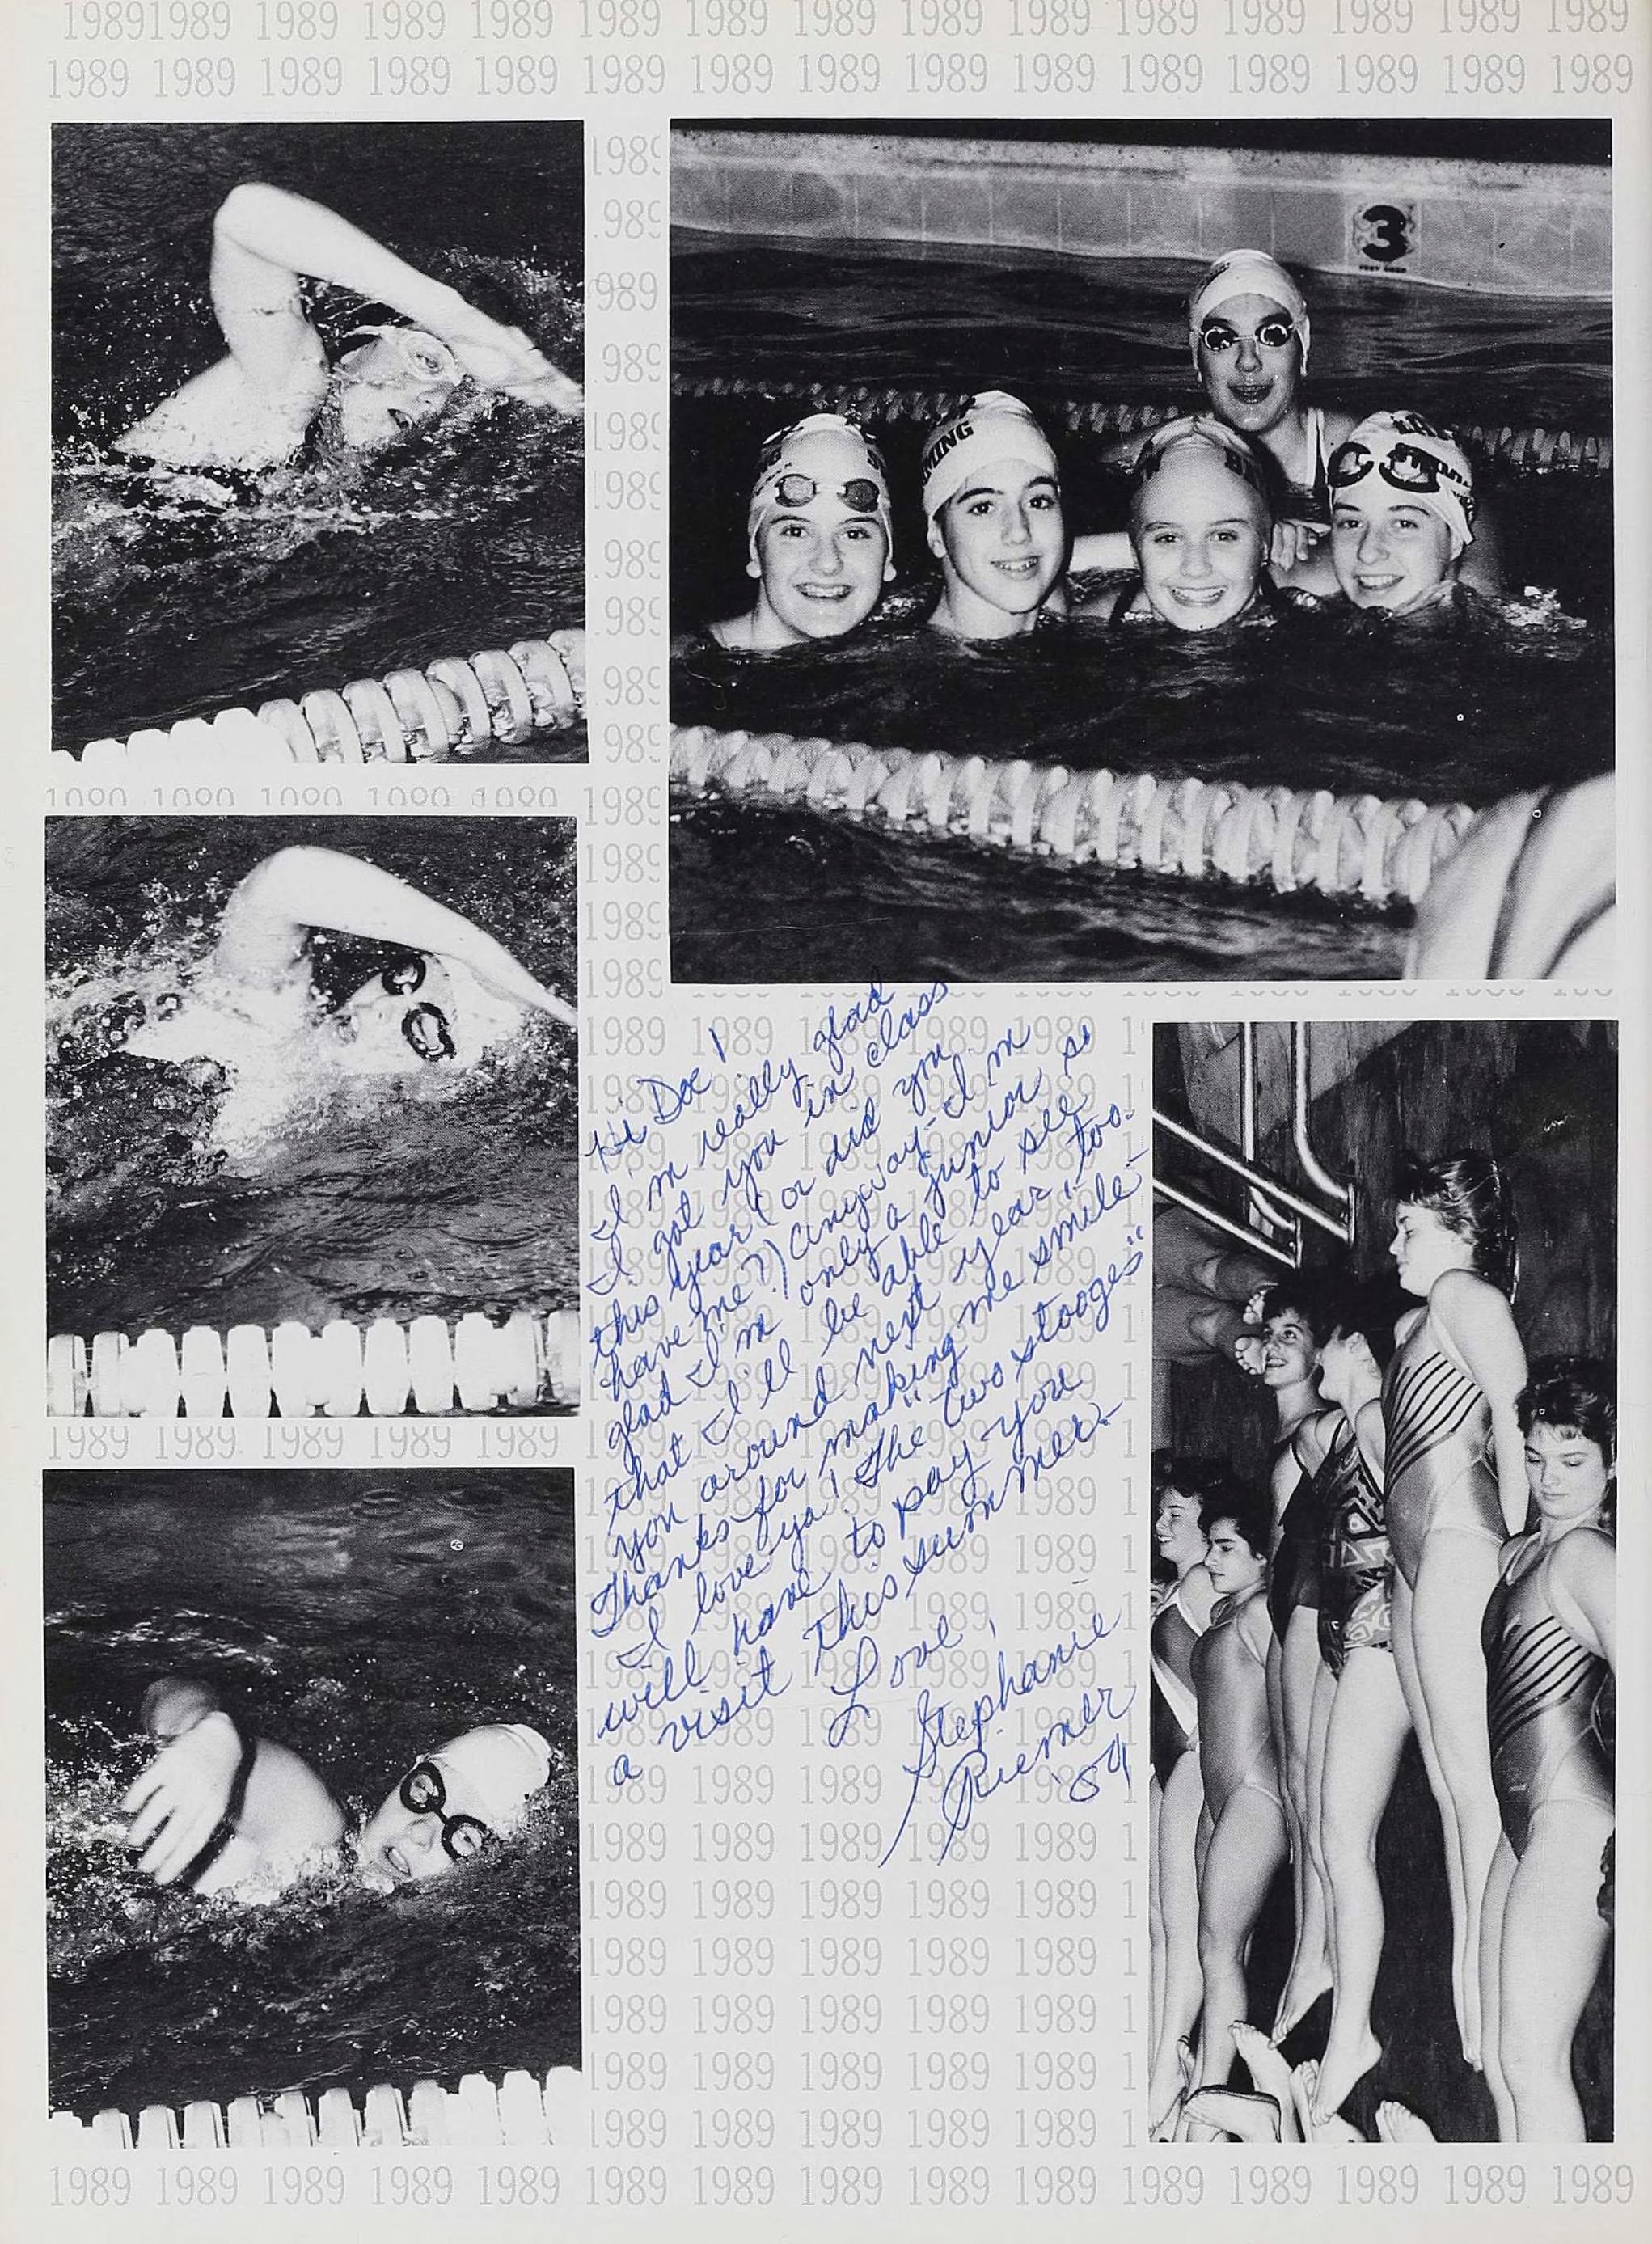 19891989 1989 1989 1989 1989 1989 1989 1989 1989 1989 1989 1989 1989 1989
1989 1989 1989 1989 1989 1989 1989 1989 1989 1989 1989 1989 1989 1989 1989
3
MING
Hi Doc!
I'm really glad
I got you in class
this year (or did you
have me?) Anyway-I'm
glad I'm only a junior so
that I'll be able to see
you around next year, too.
Thanks for making me smile-
I love ya! "The two stooges"
will have to pay you
a visit this summer.-
Love,
Stephanie
Riemer
1989 1989 1989 1989 1989
1989 1989 1989 1989 1989 1989 1989 1989 1989 1989 1989 1989 1989 1989 1989